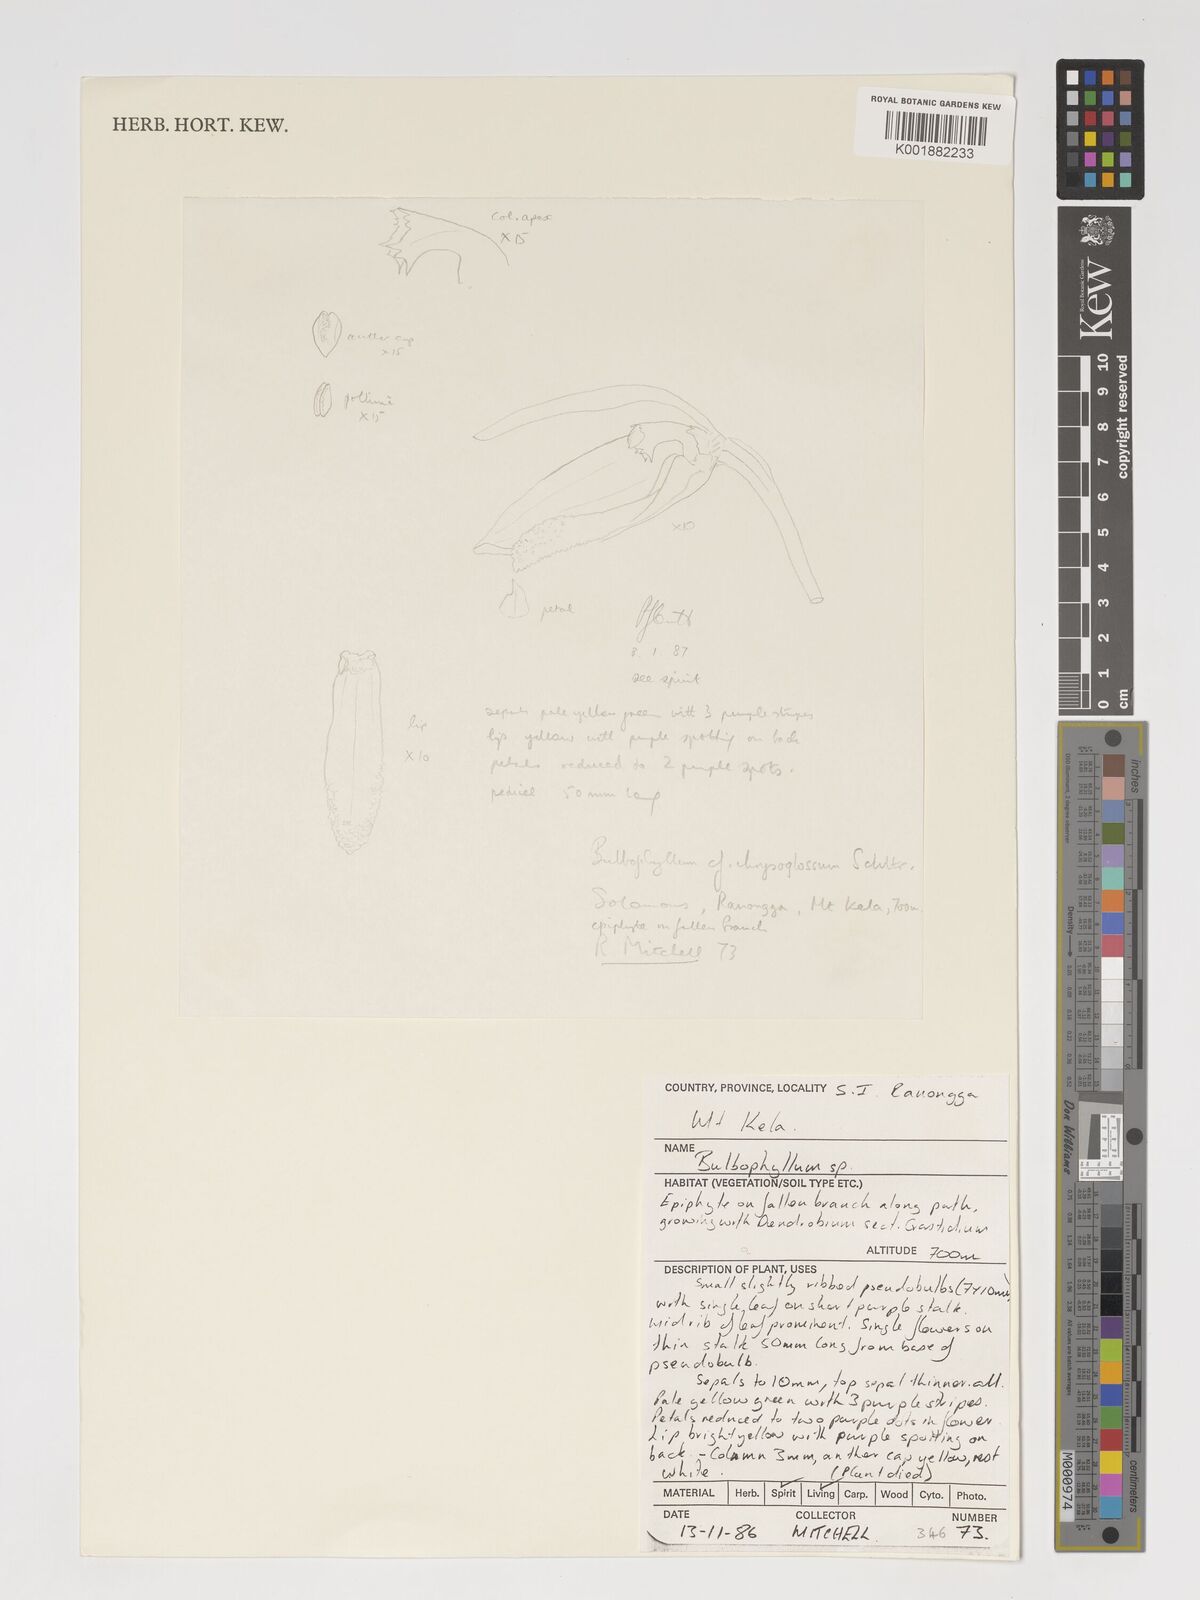 HERB. HORT. KEW.
ROYAL BOTANIC GARDENS KEW
K001882233
col. apex
x 15
anther cap
x 15
x 15
x10
petal
8. 1. 87
see spirit
sepals pale yellow green with 3 purple stripes
lip yellow with purple spotting on back
petals reduced to 2 purple spots.
pedicel 50 mm long
lip
x 10
Bulbophyllum cf. chrysoglossum Schltr.
Solomons, Ranongga, Mt Kela, 700m.
epiphyte on fallen branch
R Mitchell 73
COUNTRY, PROVINCE, LOCALITY S.I. Ranongga
Mt Kela.
NAME
Bulbophyllum sp.
HABITAT (VEGETATION/SOIL TYPE ETC.)
Epiphyte on fallen branch along path,
growing with Dendrobium sect. Grastidium
ALTITUDE 700m
DESCRIPTION OF PLANT, USES
Small slightly ribbed pseudobulbs (7x10mm)
with single leaf on short purple stalk.
Midrib of leaf prominent. Single flowers on
thin stalk 50mm long from base of
pseudobulb.
Sepals to 10mm, top sepal thinner. all.
Pale yellow green with 3 purple stripes.
Petals reduced to two purple dots in flower
Lip bright yellow with purple spotting on
back - Column 3mm, anther cap yellow, not
white. (Plant died)
MATERIAL Herb. Spirit Living Carp. Wood Cyto. Photo.
DATE COLLECTOR NUMBER
13-11-86 MITCHELL 346 73.
Kew
Royal Botanic Gardens
copyright reserved
0 1 2 3 4 5 6 7 8 9 10
cm
inches
Density
Don Williams
centimeters
M000974